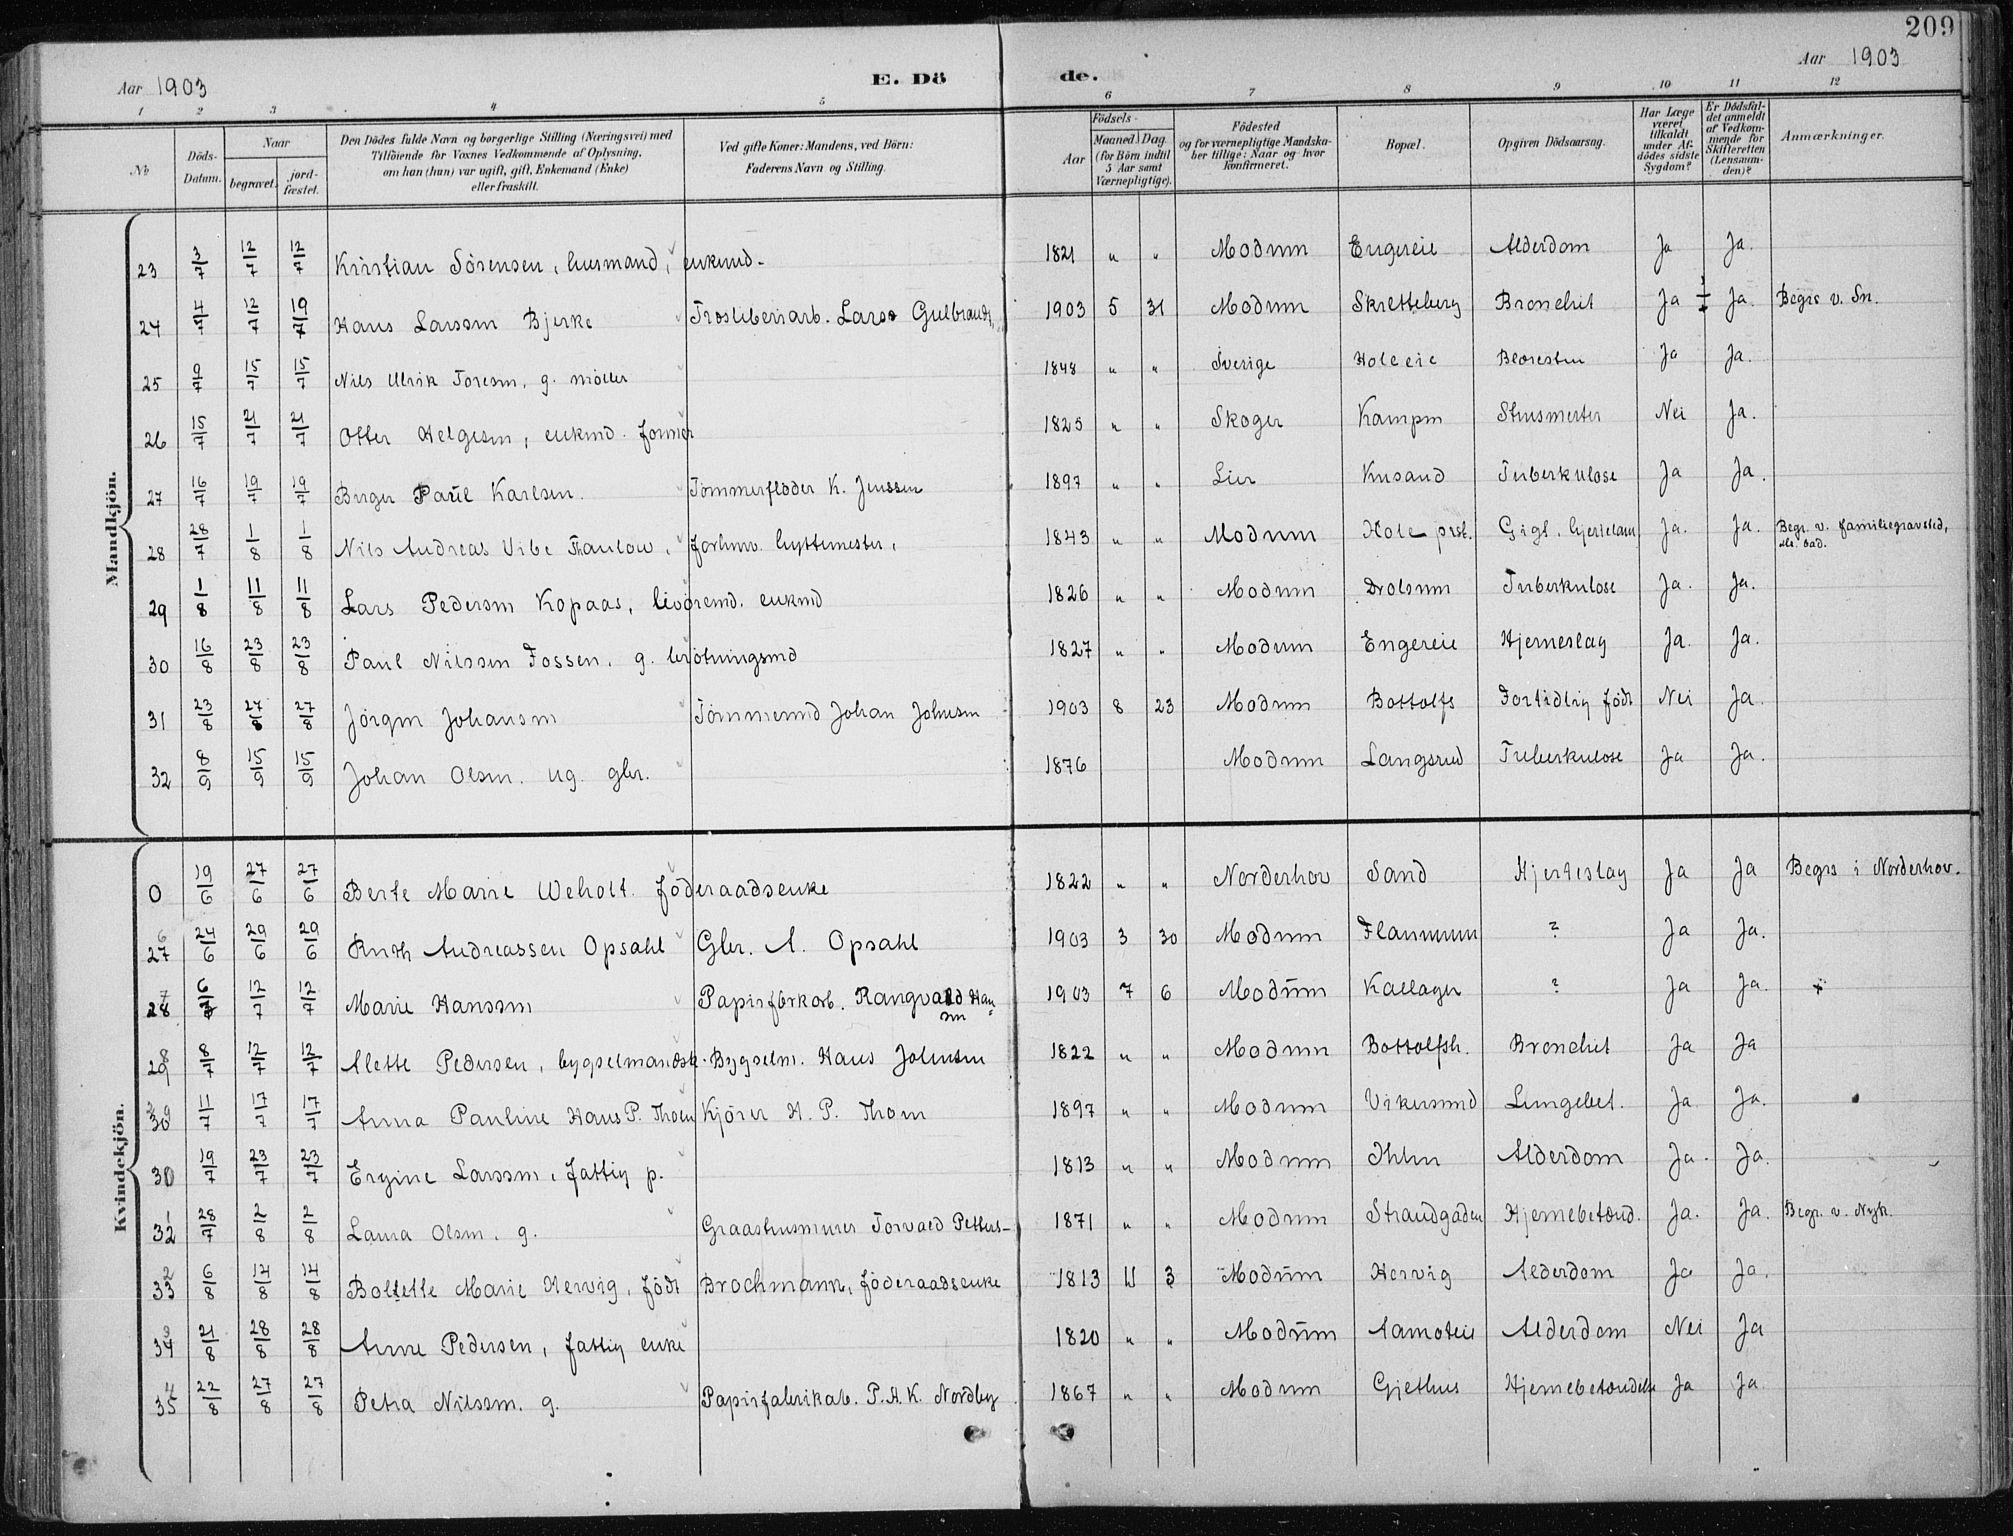 209
Aar 1903
E. Dö
de.
Aar 1903
1 2 3 4 5 6 7 8 9 10 11 12
No
Döds-Datum.
Naar
begravet.
jord-fæstet.
Den Dödes fulde Navn og borgerlige Stilling (Næringsvei) med
Tilföiende for Voxnes Vedkommende af Oplysning,
om han (hun) var ugift, gift, Enkemand (Enke)
eller fraskilt.
Ved gifte Koner: Mandens, ved Börn:
Faderens Navn og Stilling.
Födsels-
Aar
Maaned. Dag.
(for Börn indtil
5 Aar samt
Værnepligtige).
Födested
og for værnepligtige Mandska-
ber tillige: Naar og hvor
konfirmeret.
Bopæl.
Opgiven Dödsaarsag.
Har Læge
været
tilkaldt
under Af-
dödes sidste
Sygdom?
Er Dödsfal-
det anmeldt
af Vedkom-
mende for
Skifteretten
(Lensman-
den)?
Anmærkninger.
Mandkjön.
23 3/7 12/7 12/7 Kristian Sörensen, husmand, enkmd. 1821 " " Modum Engereie Alderdom Ja Ja.
24 4/7 12/7 19/7 Hans Larssen Bjerke Træsliberiarb. Lars Gulbrands. 1903 5 31 Modum Skretteberg Bronchit Ja Ja. Begr. v. Sn.
25 9/7 15/7 15/7 Nils Ulrik Toresen, g. möller 1848 " " Sverige Hole eie Blæresten Ja Ja.
26 15/7 21/7 21/7 Otter Helgesen, enkmd. 1825 " " Skoger Kampen Nei Ja.
27 16/7 19/7 19/7 Birger Paul Karlsen. Tömmerflöder K. Jenssen 1897 " " Lier Knsand Tuberkulose Ja Ja.
28 28/7 1/8 1/8 Nils Andreas Vibe Thaulow, forhenv. hyttemester, 1843 " " Modum Hole prst. Gigt, hjertelam Ja. Ja. Begr. v. familiegravsted,
bad.
29 1/8 11/8 11/8 Lars Pedersen Kopaas, livöremd. enkmd 1826 " " Modum Drolsum Tuberkulose Ja. Ja.
30 16/8 23/8 23/8 Paul Nilssen Fossen, g. brötningsmd 1827 " " Modum Engereie Hjerneslag Ja. Ja.
31 23/8 27/8 27/8 Jörgen Johansen Tömmermd Johan Johnsen 1903 8 23 Modum Bottolfs Fortidlig födt Nei Ja.
32 8/9 15/9 15/9 Johan Olsen. ug. gbr. 1876 Modum Langsrud Tuberkulose Ja Ja.
Kvindekjön.
0 19/6 27/6 27/6 Berte Marie Weholt. föderaadsenke 1822 " " Norderhov Sand Hjerteslag Ja Ja Begrs i Norderhov.
27 6 24/6 29/6 29/6 Ruth Andreassen Opsahl Gbr. A. Opsahl 1903 3 30 Modum Flannum ? Ja Ja.
28 7 6/7 12/7 12/7 Marie Hanssen Papirfbrkarb. Rangvald Han
sen 1903 7 6 Modum Kallager ? Ja Ja.
29 8 8/7 12/7 12/7 Alette Pedersen, bygselmandsk. Bygselm. Hans Johnsen 1822 " " Modum Bottolfsh. Bronchit Ja Ja
30 9 11/7 17/7 17/7 Anna Pauline Hans P. Thoen Kjörer H. P. Thoen 1897 " " Modum Vikersund Lungebet. Ja Ja.
30 19/7 23/7 23/7 Ergine Larssen, fattig p. 1813 " " Modum Ihlen Alderdom Ja. Ja.
32 1 28/7 2/8 2/8 Laura Olsen. g. Graastensmurer Torvald Petters- 1871 " " Modum Strandgaden Hjernebetænd. Ja. Ja. Begr. v. Nyk.
33 2 6/8 14/8 14/8 Boletette Marie Hervig, födt Brochmann, föderaadsenke 1813 11 3 Modum Hervig Alderdom Ja Ja.
34 3 21/8 28/8 28/8 Anne Pedersen, fattig enke 1820 " " Modum Aamoteie Alderdom Nei Ja
35 4 22/8 27/8 27/8 Petra Nilssen. g. Papirfabrikab. P. A. K. Nordby 1867 " " Modum Gjethus Hjernebetændelse Ja Ja